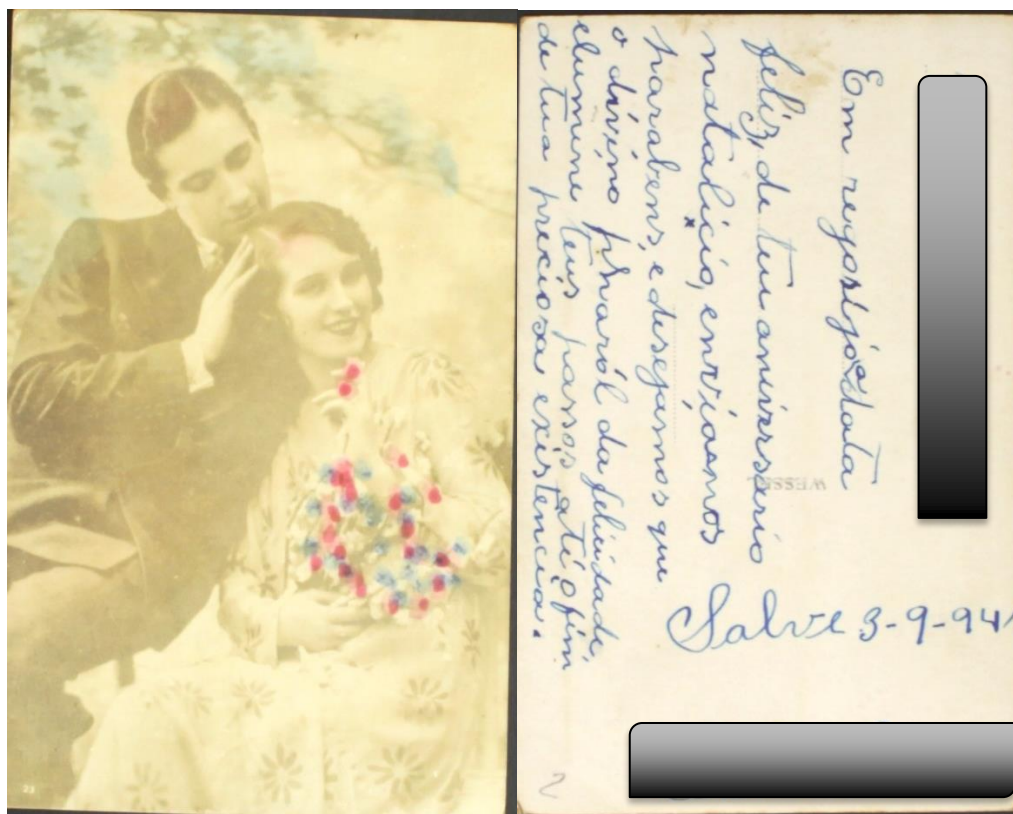 Em regosijo a data
feliz, de teu aniversario
natalicio, enviamos
parabens, e desejamos que
o divino pharaól da felicidade,
elumine teus passos até o fin
de tua preciosa existencia.
Salve 3-9-941
WESSEL
2
23